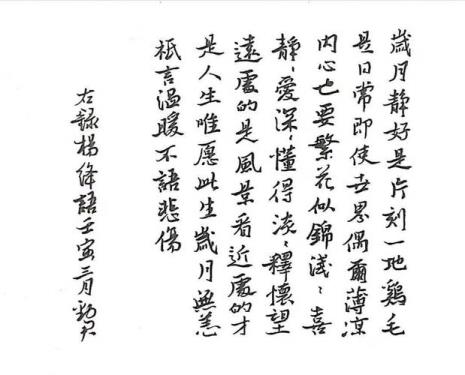 歲月靜好是片刻一地鷄毛
是日常即使世界偶爾薄凉
内心也要繁花似錦淺々喜
靜々愛深々懂得淡々釋懷望
遠處的是風景看近處的才
是人生唯愿此生歲月無恙
祇言温暖不語悲傷
右錄楊絳語壬寅三月